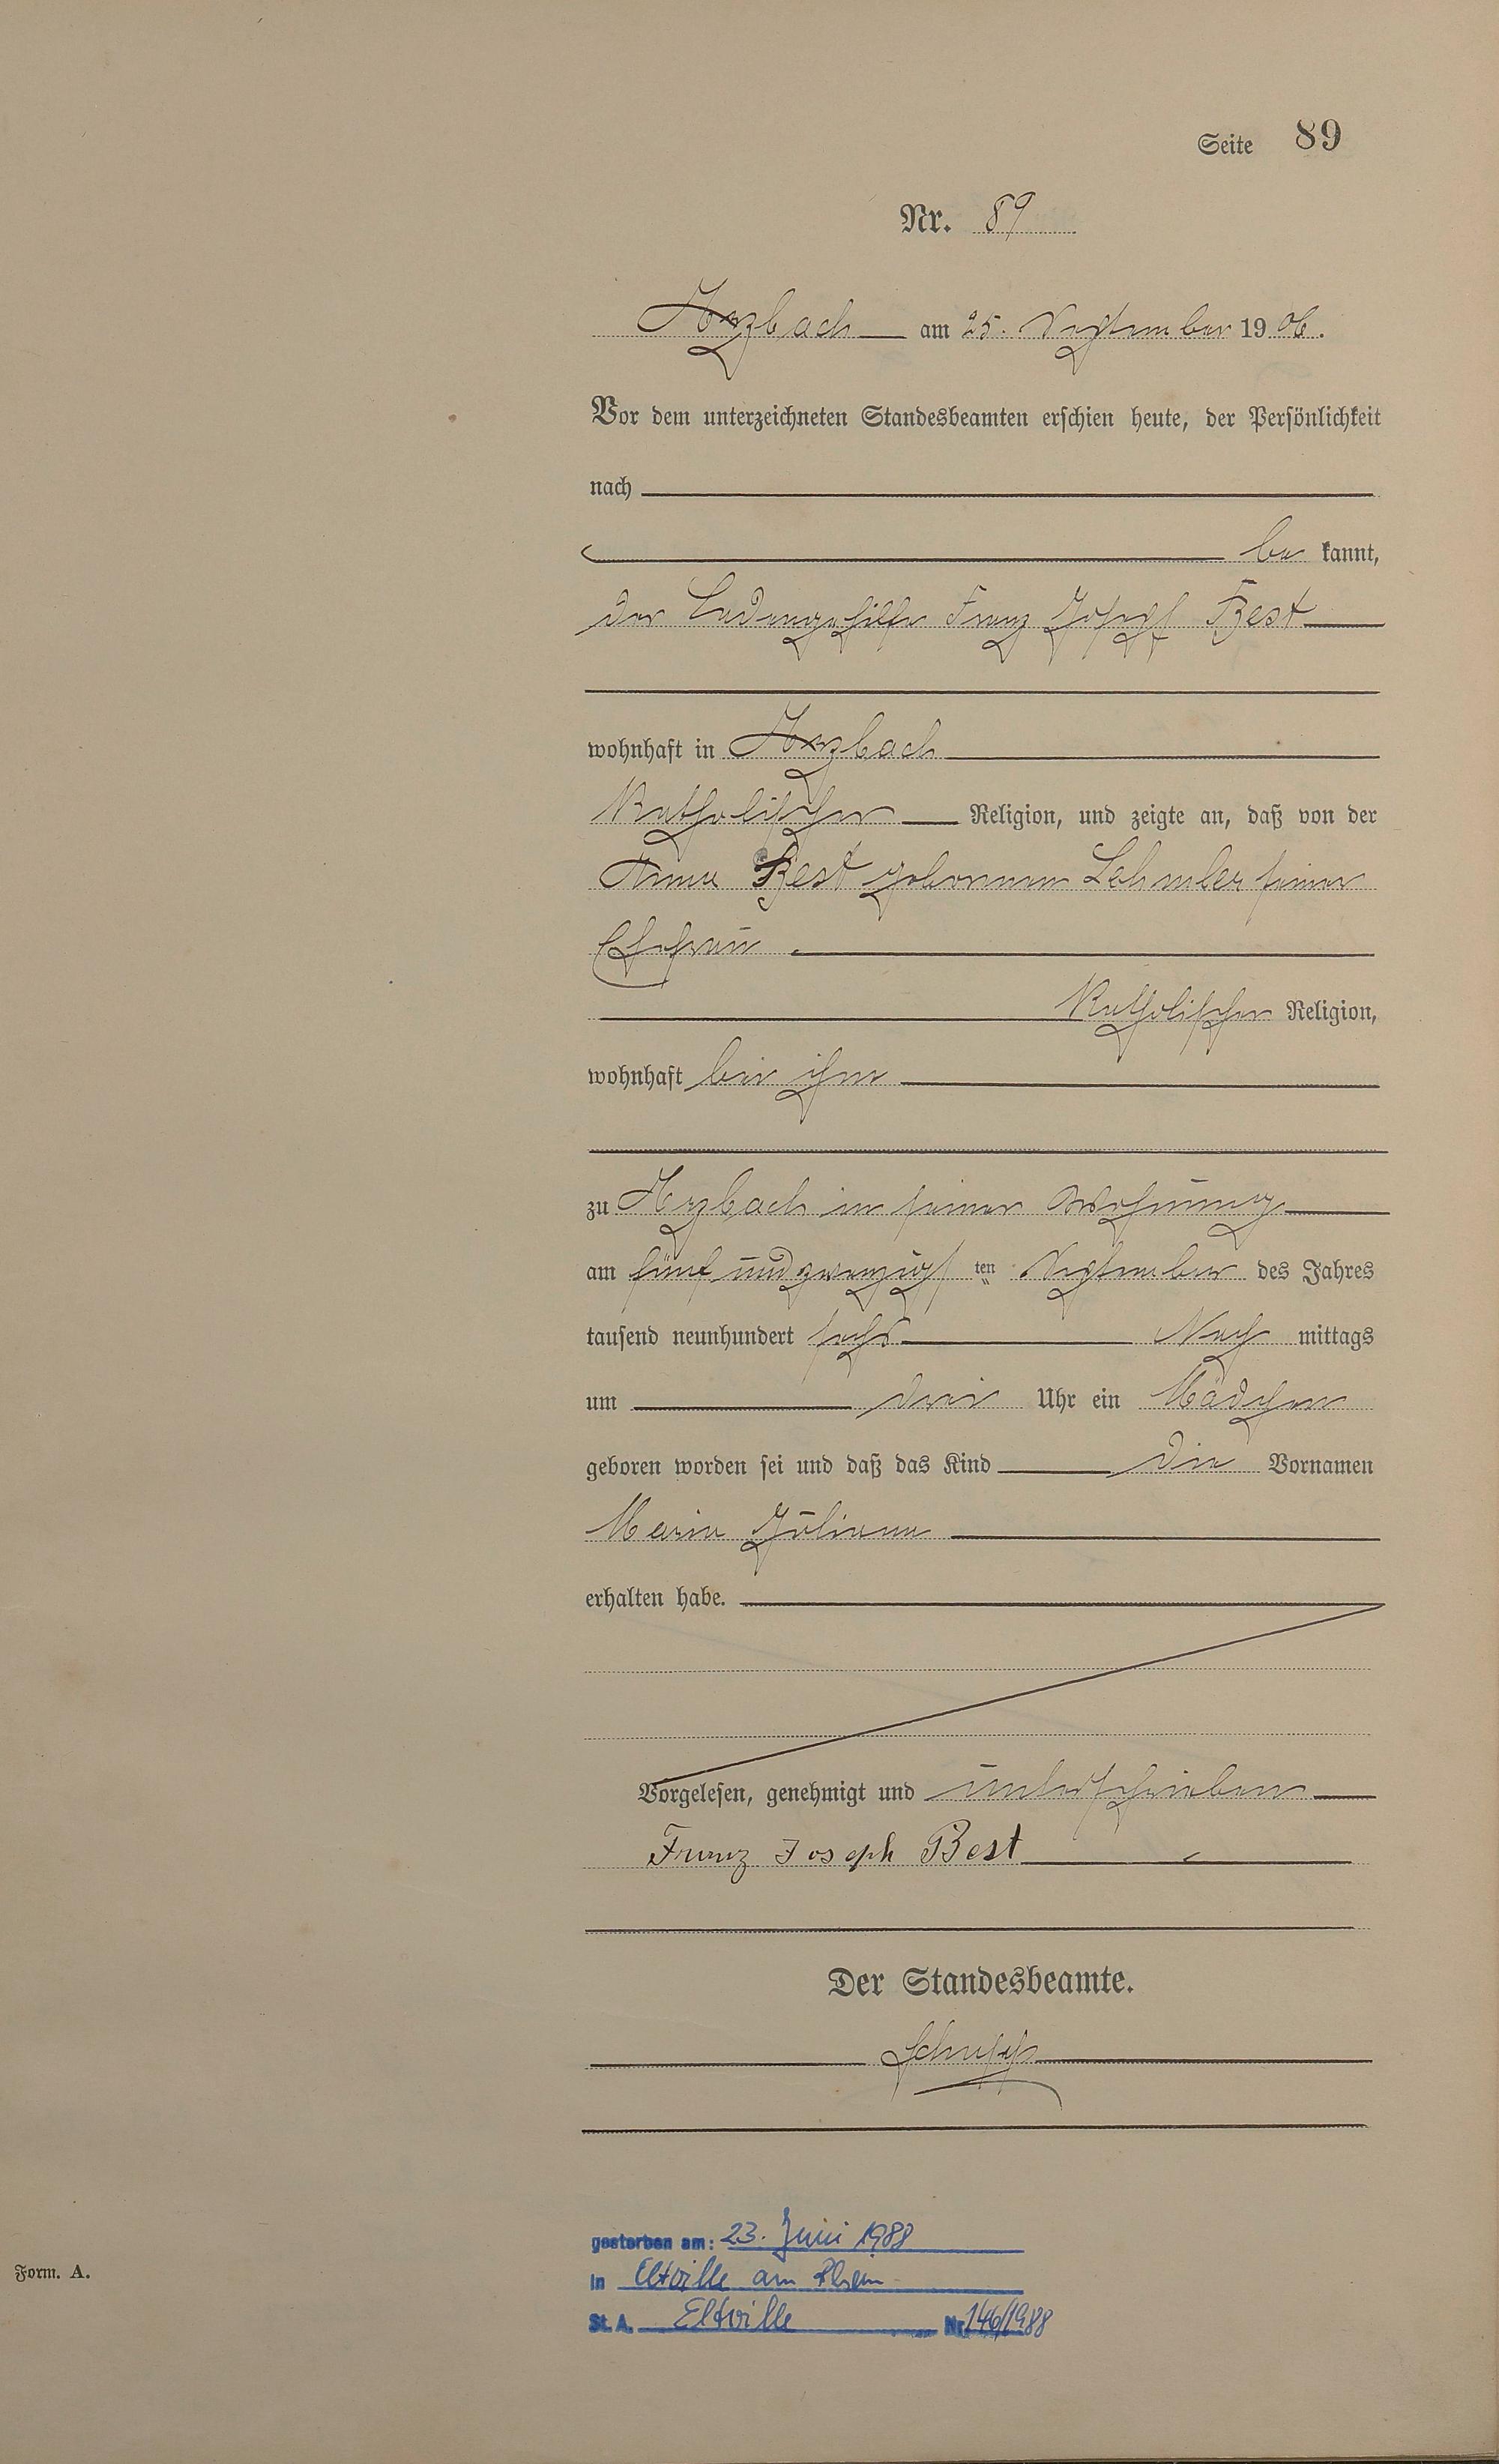 Seite 89
Nr. 89
Arzbach am 25. September 1906.
Vor dem unterzeichneten Standesbeamten erschien heute, der Persönlichkeit
nach
be kannt,
der Ladengehilfe Franz Joseph Best
wohnhaft in Arzbach
Katholischer Religion, und zeigte an, daß von der
Anna Best geborenen Lehmler seiner
Ehefrau
Katholischer Religion,
wohnhaft bei ihm
zu Arzbach in seiner Wohnung
am fünf und zwanzigsten September des Jahres
tausend neunhundert sechs Nach mittags
um drei Uhr ein Mädchen
geboren worden sei und daß das Kind die Vornamen
Maria Juliana
erhalten habe.
Vorgelesen, genehmigt und unterschrieben
Franz Joseph Best
Der Standesbeamte.
gestorben am: 23. Juni 1988
in Eltville am Rhein
St. A. Eltville Nr. 146/1988
Form. A.